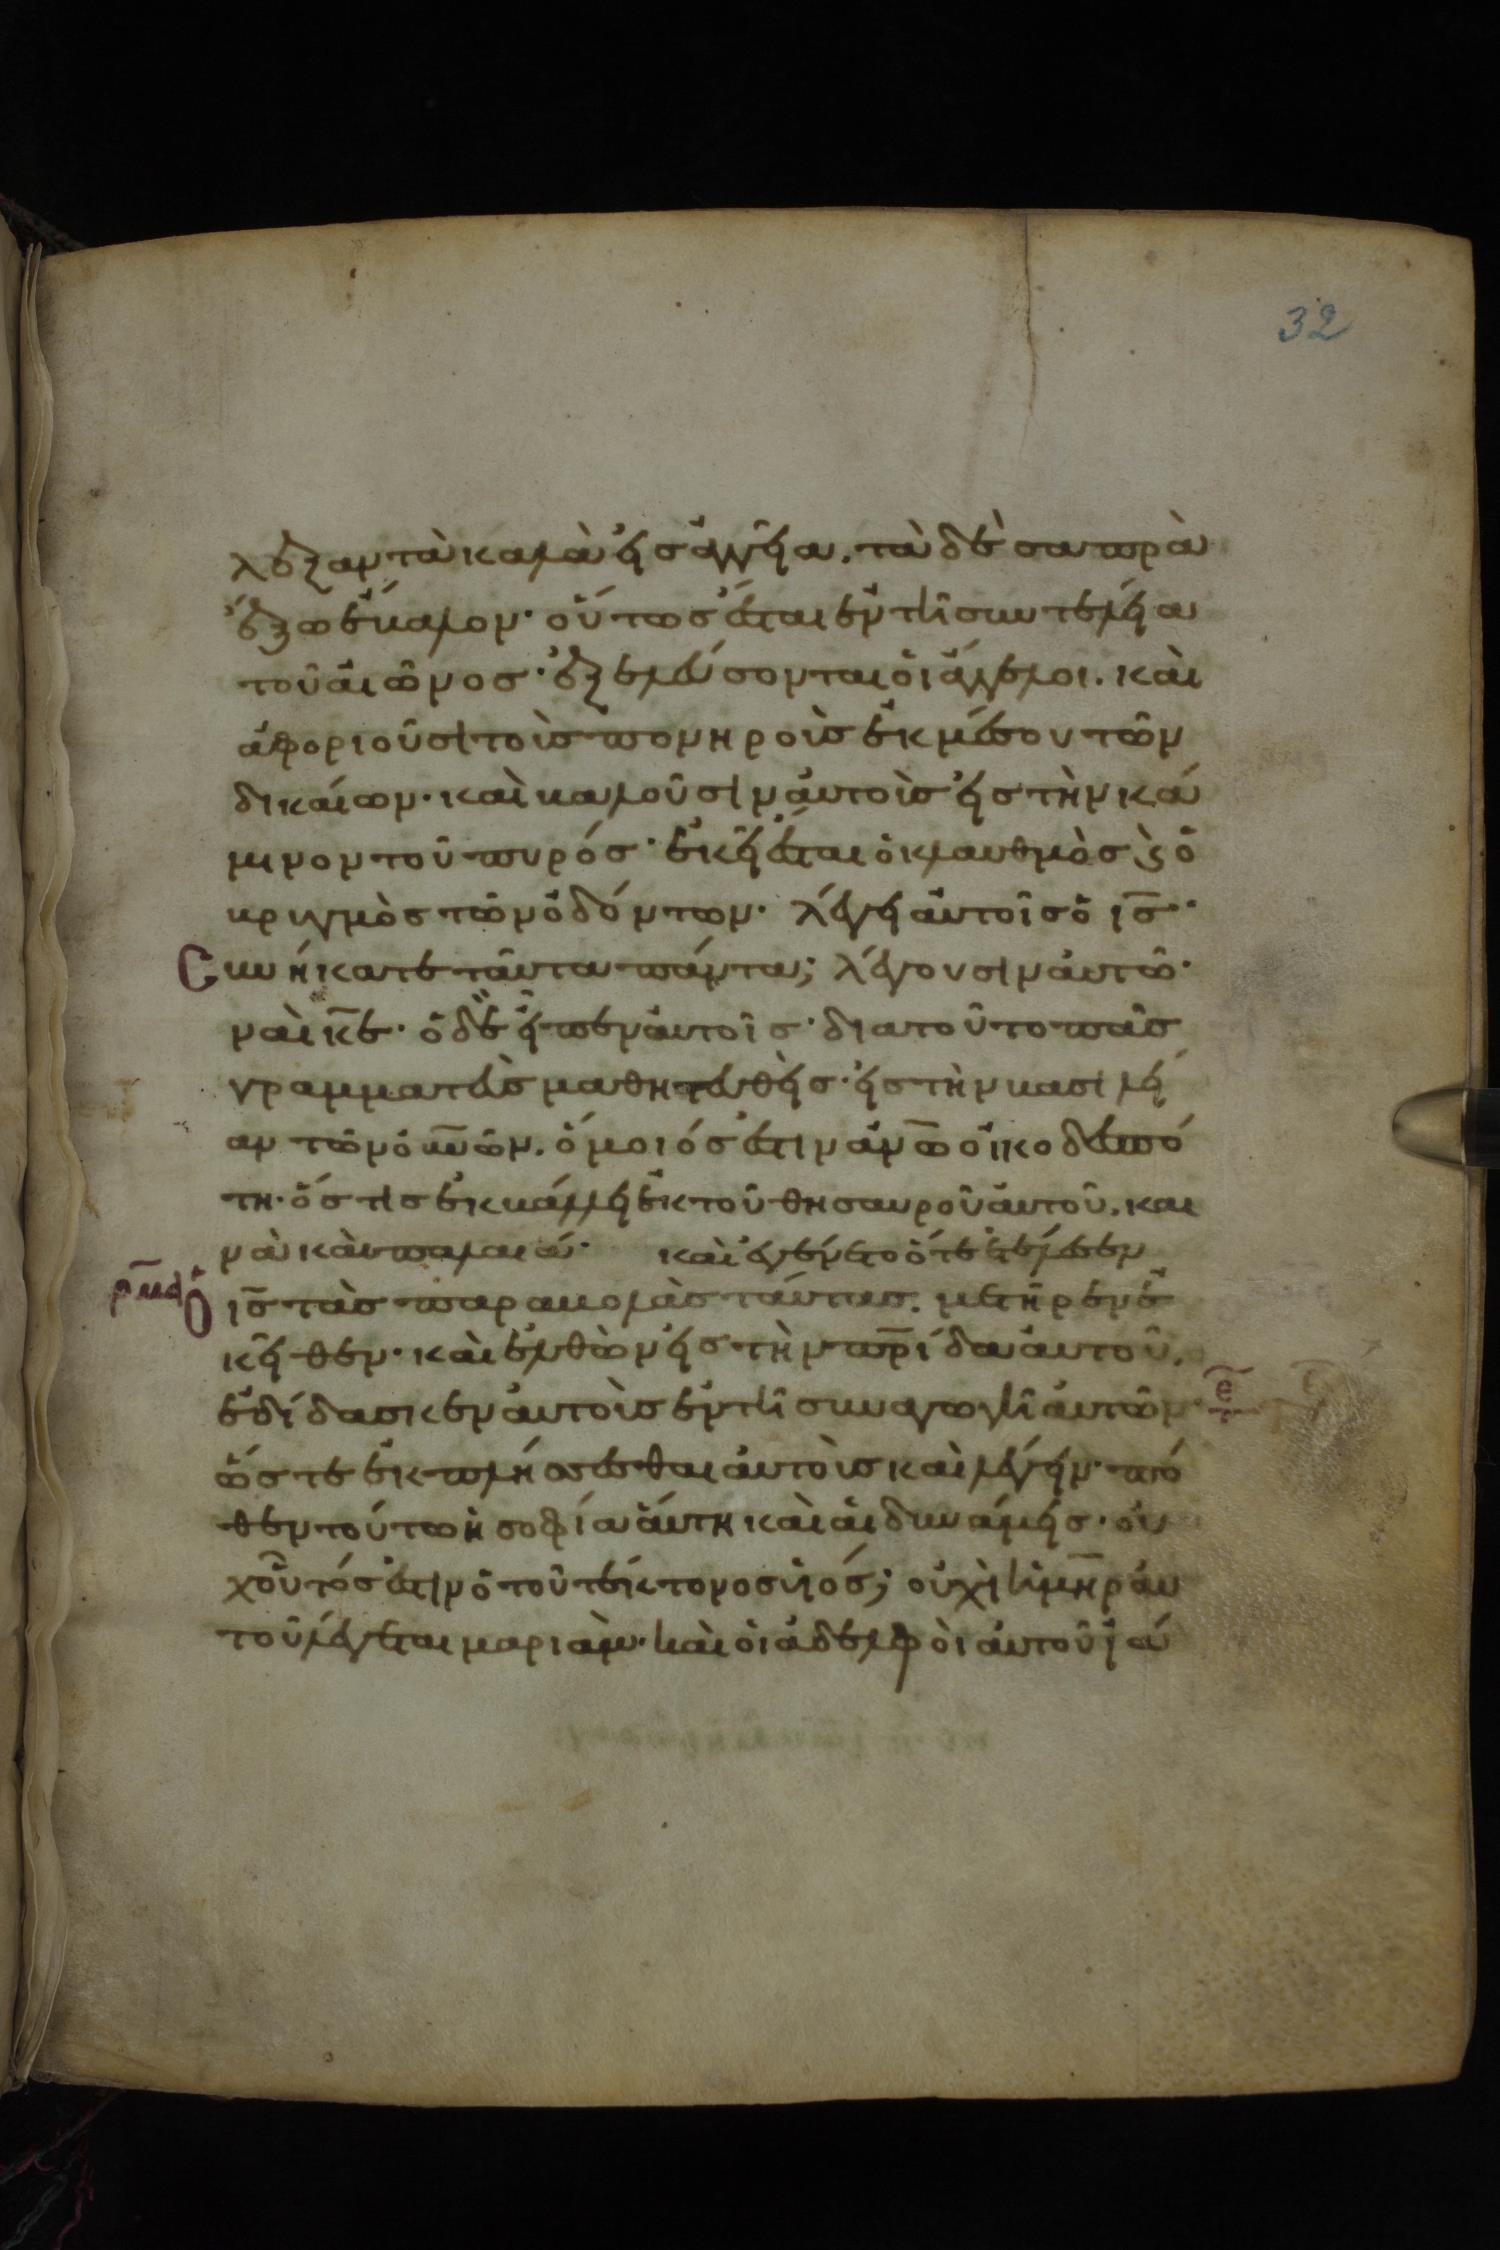 32
λεξαν τὰ καλὰ εἰς ἀγγεῖα. τὰ δὲ σαπρὰ
ἔξω ἔβαλον· οὕτως ἔσται ἐν τῆ συντελεία
τοῦ αἰῶνος· ἐξελεύσονται οἱ ἄγγελοι. καὶ
ἀφοριοῦσι τοὺς πονηροὺς ἐκ μέσου τῶν
δικαίων· καὶ βαλοῦσιν αὐτοὺς εἰς τὴν κά
μινον τοῦ πυρός· ἐκεῖ ἔσται ὁ κλαυθμὸς ϗ ὁ
βρυγμὸς τῶν ὀδόντων· λέγει αὐτοῖς ὁ ις·
Συνήκατε ταῦτα πάντα; λέγουσιν αὐτῶ·
ναὶ κε· ὁ δὲ εἶπεν αὐτοῖς· διατοῦτο πᾶς
γραμματεὺς μαθητευθεὶς· εἰς τὴν βασιλεί
αν τῶν οὐνῶν. ὅμοιός ἐστιν ἀνῶ οἰκοδεσπό
τη· ὅστις ἐκβάλλει ἐκ τοῦ θησαυροῦ αὐτοῦ. και
νὰ καὶ παλαιά· καὶ ἐγένετο ὅτε ἐτέλεσεν
ρμα Ὁ ις τὰς παραβολὰς ταύτας. μετῆρεν ἐ
κεῖθεν· καὶ ἐλθὼν εἰς τὴν πρίδα αὐτοῦ.
ἐδίδασκεν αὐτοὺς ἐν τῆ συναγωγῆ αὐτῶν·
ὥστε ἐκπλήσσεσθαι αὐτοὺς καὶ λέγειν· πό
θεν τούτω ἡ σοφία αὕτη καὶ αἱ δυνάμεις· οὐ
χοὗτός ἐστιν ὁ τοῦ τέκτονος υἱός; οὐχὶ ἡ μηρ αὐ
τοῦ λέγεται μαριὰμ· καὶ οἱ ἀδελφοὶ αὐτοῦ ἰά